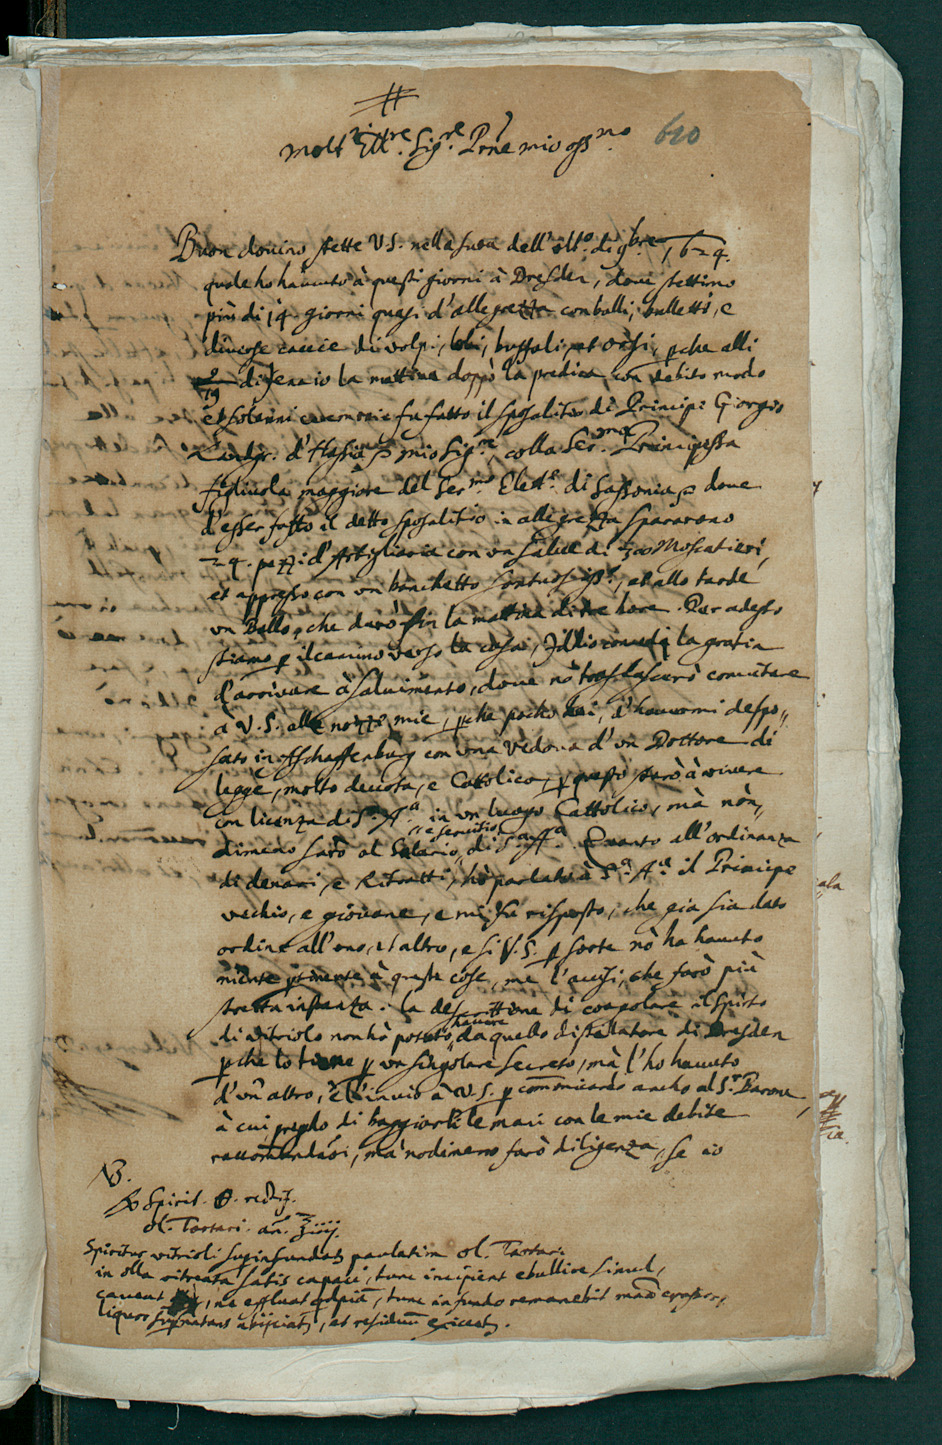 Molt' Ill.re Sig.re P.rone mio oss.mo 620
Buon dovino stette V.S. nella sua dell' olt.o di 9bre 1624.
quale ho havuto à questi giorni à Dresden, dove stettimo
più di 14 giorni quasi d'allegrezze con balli, balletti, e
diverse caccie di volpi, lovi, buffali, et orsi, p che alli
di Jenaio la mattina doppò la predica con debito modo
et solenni ceremonie fu fatto il sposalitio di Principe Giorgio
Landgr. d'Hassia mio Sig.re colla Ser.ma Principessa
figliuola maggiore del Ser.mo Elett.e di Sassonia, dove
d'esser fatto il detto sposalitio in allegrezza spararono
24. pezzi d'Artigliaria con un salve di Moscatieri,
et appresso con un banchetto sontuosiss.o, et allo tarde
un Ballo, che durò fin la mattina di tre hore. Per adesso
stiamo p il camino verso la casa, Iddio conceda la gratia
d'arrivare à salvimento, dove nò trasslascerò convitare
à V.S. alle nozze mie, p che pocho fai, d'havermi despo„
sato in Aschaffenburg con una vedova d'un Dottore di
legge, molto devota, e Cattolica, p questo starò à vivere
con licenza di S.A.a in un luogo Cattolico, mà nòn„
dimeno sarò al Salario „e servitio„ di S.A.a. Quanto all'ordinanza
di denari, e Ritratti, hò parlato à S.A.a il Principe
vechio, e giovane, e mi fu risposto, che gia sia dato
ordine all'uno, et altro, e si V.S. p sorte nò ha havuto
niente ptinente à queste cose, me l'avisi, che farò più
stretta instanza. la descrittione di coagolare il spirito
di vitriolo non hò potuto havere da quello distellatore di Dresden
p che lo tiene p un singolare secreto, mà l'ho havuto
d'un altro, e l'invio à V.S. p communicarlo ancho al S.r Barone,
à cui prego di baggiarli le mani con le mie debite
raccomendasi, mà nodimeno farò diligenza, se io
NB.
Spirit. redif.
ol. Tartari. an. ℥iiij.
Spiritus vitrioli superinfundat. paulatim ol. Tartari
in olla vitreata satis capaci, tunc incipient ebullire simul,
caveat, ne effluat, tunc in fundo remanebit
liquor supnatans abijciat, et residuum exiccat.